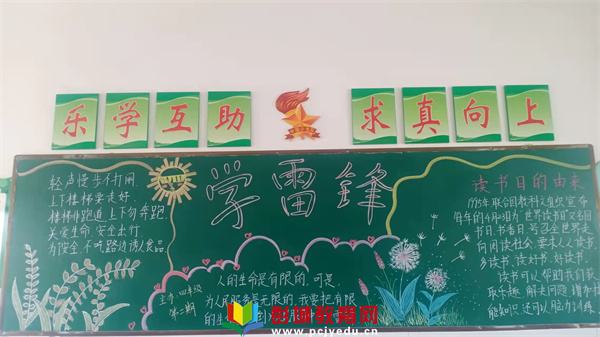 乐学互助
求真向上
学雷锋
轻声慢步不打闹
上下楼梯要走好
楼梯非跑道上下勿奔跑
关爱生命安全出行
为安全不吃路边诱人食品
主办:四年级
第二期
人的生命是有限的,可是,
为人民服务是无限的,我要把有限
的生
读书日的由来
1995年联合国教科文组织宣布
每年的4月23日为“世界读书日”又名图
书日,书香日,号召全世界走
向阅读社会,要求人人读书,
多读书,读好书,好读书。
读书可以帮助我们获
取乐趣,解决问题,增加技
能知识还可以脑力训练
彭城教育网
www.pcjyedu.cn